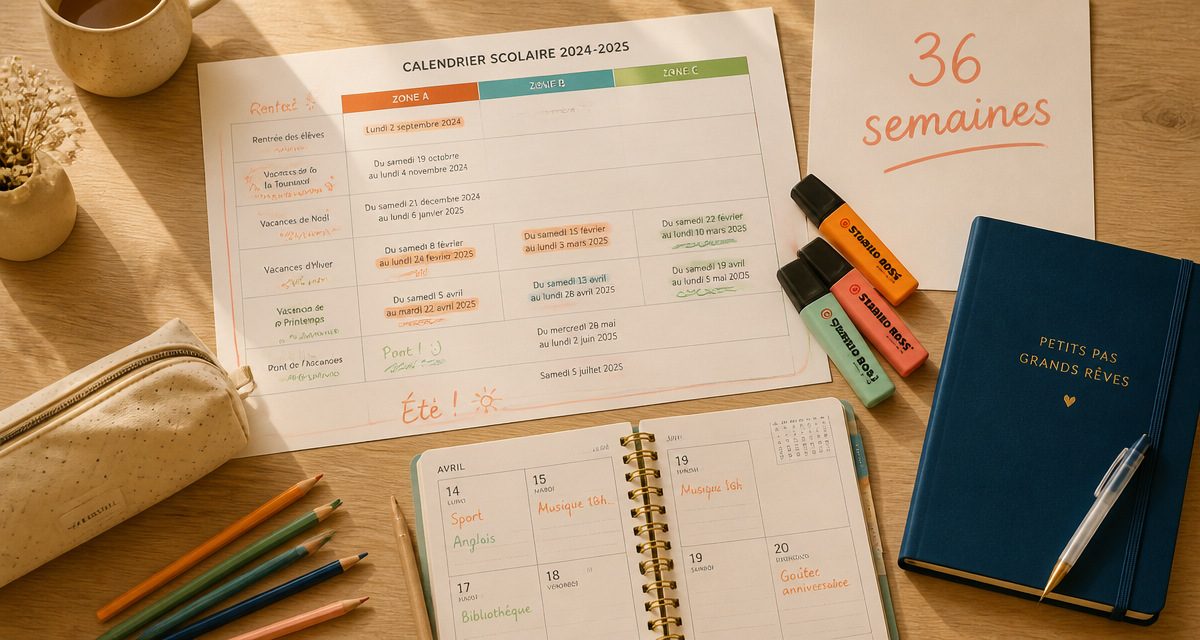 CALENDRIER SCOLAIRE 2024-2025
ZONE A
ZONE B
ZONE C
Rentrée des élèves
Lundi 2 septembre 2024
Vacances de la
la
Du samedi 19 octobre
au lundi 4 novembre 2024
Vacances de Noël
Du samedi 21 décembre 2024
au lundi 6 janvier 2025
Vacances d'Hiver
Du samedi 8 février
au lundi 24 février 2025
Du samedi 15 février
au lundi 3 mars 2025
Du samedi 22 février
au lundi 10 mars 2025
Printemps
Du samedi 5 avril
au mardi 22 avril 2025
Du samedi 13 avril
au lundi 28 avril 2025
Du samedi 19 avril
au lundi 5 mai 2025
Pont de
Pont ! :)
Du mercredi 28 mai
au lundi 2 juin 2025
Samedi 5 juillet 2025
Été !
36
semaines
STABILO BOSS
STABILO BOSS
STABILO BOSS
PETITS PAS
GRANDS RÊVES
AVRIL
14
Sport
Anglais
15
Musique 18h
17
Bibliothèque
18
19
Musique 16h
19
20
Goûter
anniversaire